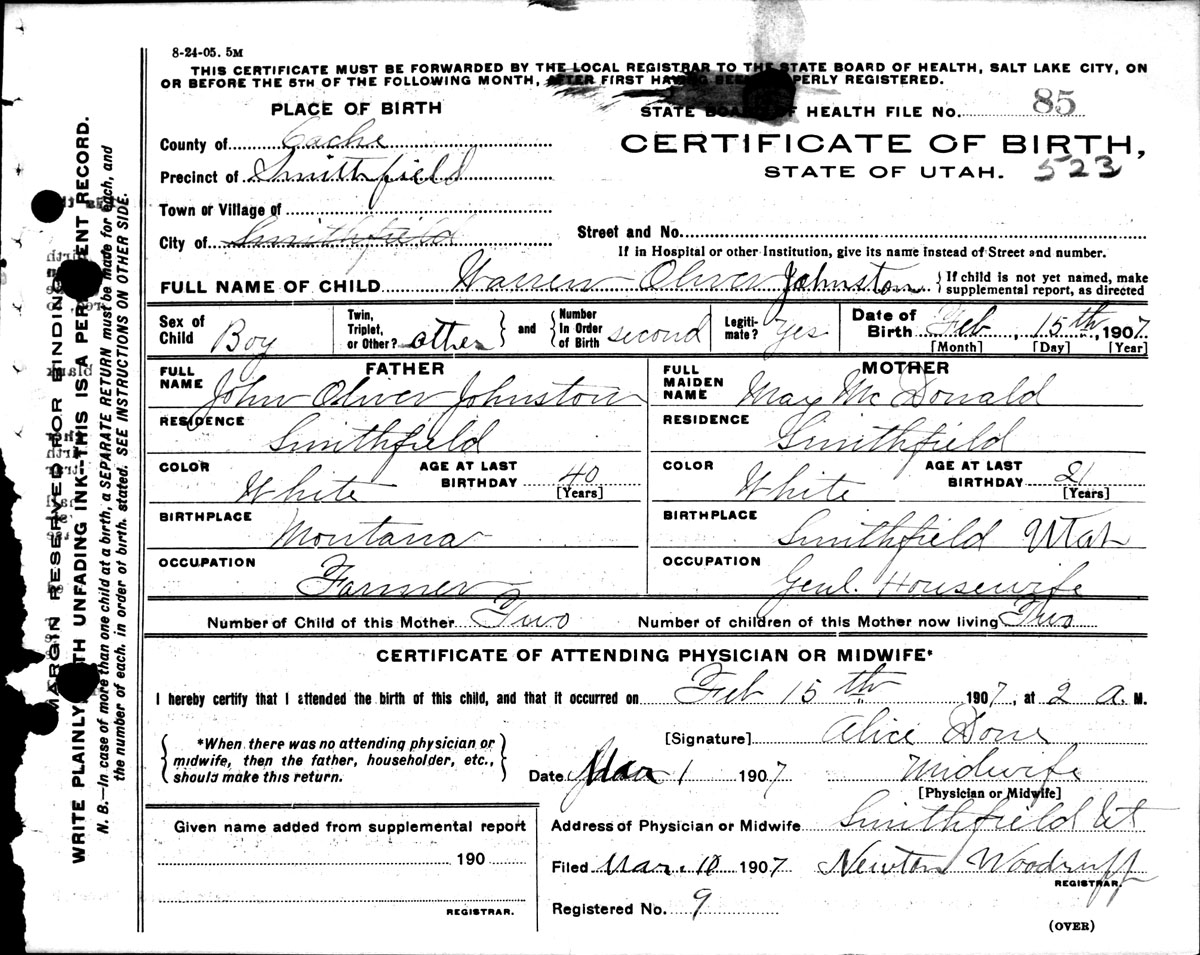 8-24-05. 5M
THIS CERTIFICATE MUST BE FORWARDED BY THE LOCAL REGISTRAR TO THE STATE BOARD OF HEALTH, SALT LAKE CITY, ON
OR BEFORE THE 5TH OF THE FOLLOWING MONTH, AFTER FIRST HAVING BEEN PROPERLY REGISTERED.
PLACE OF BIRTH
STATE BOARD OF HEALTH FILE No. 85
County of Cache
CERTIFICATE OF BIRTH,
Precinct of Smithfield
STATE OF UTAH. 523
Town or Village of
City of Smithfield
Street and No.
If in Hospital or other Institution, give its name instead of Street and number.
FULL NAME OF CHILD Warren Oliver Johnston {If child is not yet named, make
supplemental report, as directed
Sex of Child Boy
Twin, Triplet, or Other? other } and { Number In Order of Birth second
Legiti-mate? Yes
Date of Birth Feb, 15th, 1907.
[Month] [Day] [Year]
FATHER
FULL NAME John Oliver Johnston
RESIDENCE Smithfield
COLOR White AGE AT LAST BIRTHDAY 40 [Years]
BIRTHPLACE Montana
OCCUPATION Farmer
MOTHER
FULL MAIDEN NAME May McDonald
RESIDENCE Smithfield
COLOR White AGE AT LAST BIRTHDAY 21 [Years]
BIRTHPLACE Smithfield Utah
OCCUPATION Genl. Housewife
Number of Child of this Mother Two Number of children of this Mother now living Two
CERTIFICATE OF ATTENDING PHYSICIAN OR MIDWIFE*
I hereby certify that I attended the birth of this child, and that it occurred on Feb 15th 1907, at 2 A. M.
{ *When there was no attending physician or
midwife, then the father, householder, etc.,
should make this return. }
[Signature] Alice Done
Date Mar 1 1907 Midwife
[Physician or Midwife]
Address of Physician or Midwife Smithfield Ut
Given name added from supplemental report
190
REGISTRAR.
Filed Mar. 10 1907 Newton Woodruff
REGISTRAR.
Registered No. 9
(OVER)
MARGIN RESERVED FOR BINDING
WRITE PLAINLY WITH UNFADING INK--THIS IS A PERMANENT RECORD.
N. B.—In case of more than one child at a birth, a SEPARATE RETURN must be made for each, and
the number of each, in order of birth, stated. SEE INSTRUCTIONS ON OTHER SIDE.